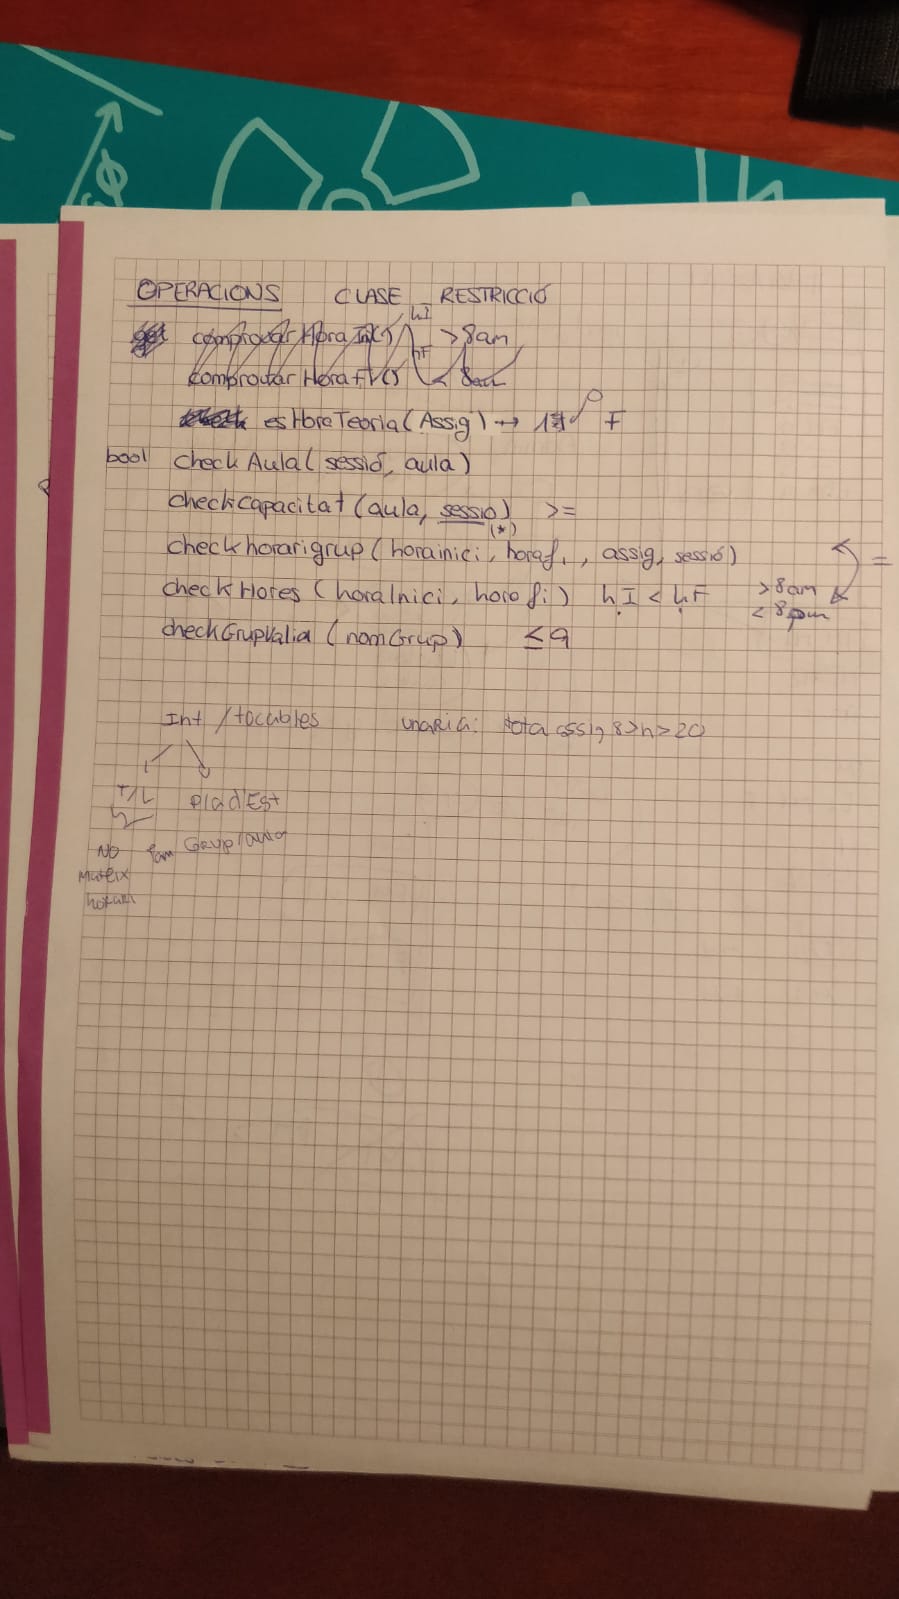 OPERACIONS CLASE RESTRICCIÓ
hI
get comprovar Hora Ini() >8am
hF
comprovar Hora Fi() < 8am
es Hora Teoria (Assig) → F
bool check Aula (sessió, aula)
check capacitat (aula, sessió) >=
(*)
check horari grup (horainici, horaf , assig, sessió) =
check Hores (horaInici, hora fi) hI < hF >8am
< 8pm
check Grup Valid (nomGrup) ≤ 9
Int / tocables unaria: tota assig 8>h>20
T/L Pla d'Est
Grup
NO
mateix
horari